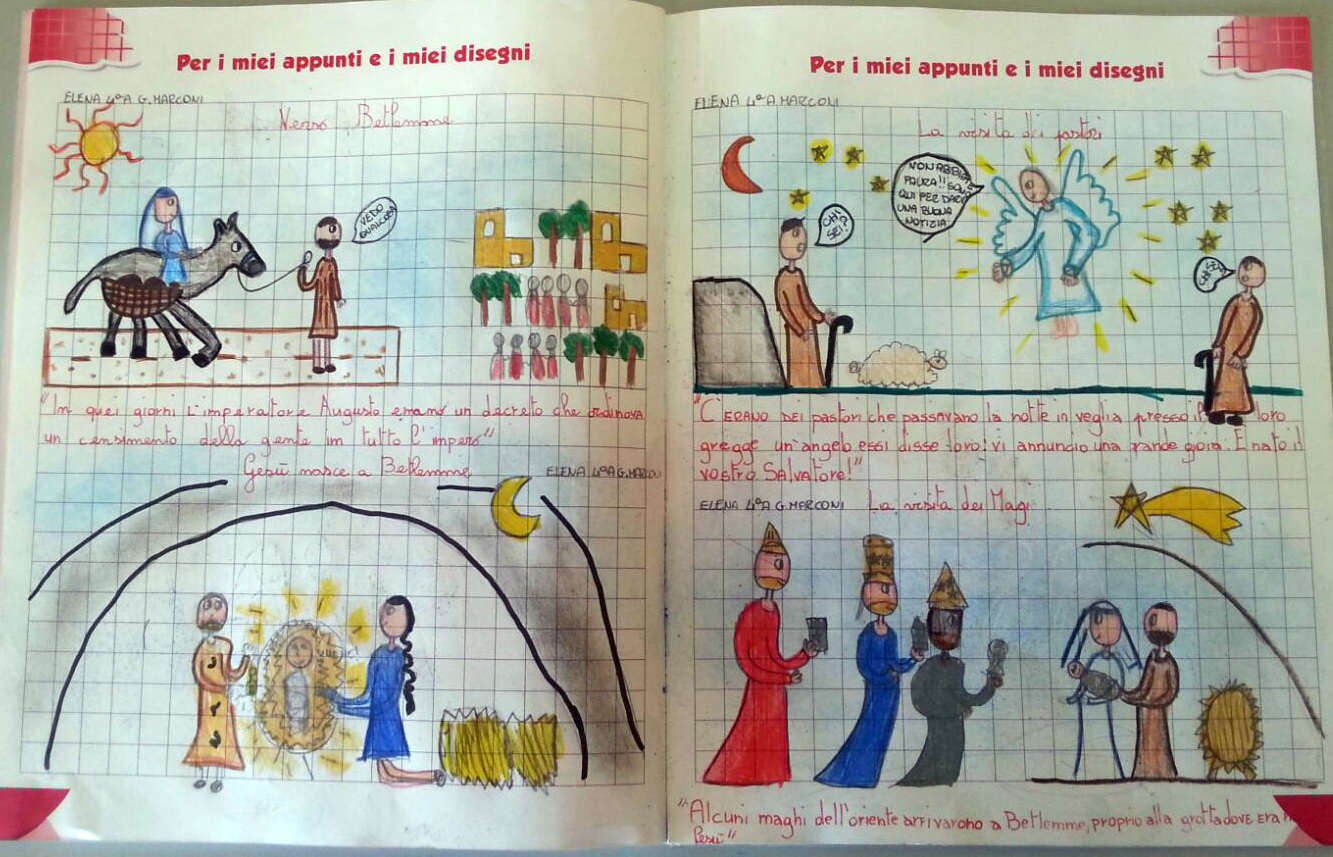 Per i miei appunti e i miei disegni
ELENA 4ªA G. MARCONI
Verso Betlemme
VEDO
QUALCOSA
"In quei giorni L'imperatore Augusto emanò un decreto che ordinava
un censimento della gente in tutto l'impero"
Gesù nasce a Betlemme
ELENA 4ªA G. MARCONI
Per i miei appunti e i miei disegni
ELENA 4ªA MARCONI
La visita dei pastori
NON ABBIA
PAURA!! SONO
QUI PER DARE
UNA BUONA
NOTIZIA
CHI
SEI?
CHI SEI?
"C'ERANO DEI pastori che passavano la notte in veglia presso il loro
gregge un'angelo essi disse loro: vi annuncio una grande gioia. È nato il
vostro SALvatore!"
ELENA 4ªA G. MARCONI
La visita dei Magi
"Alcuni maghi dell'oriente arrivarono a Betlemme, proprio alla grotta dove ERA
Gesù"